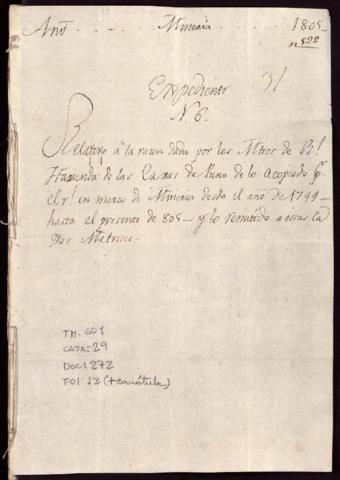 Año . . . . Mineria . . . . 1805
nº 522
31
Expediente
N. 6.
Relativo á la razon dada por los Mtros de Rl.
Hazienda de las Caxas de Puno de lo acopiado pr.
el rl. en marco de Mineria desde el año de 1799
hasta el presente de 805 – y lo remitido a estas Ca
xas Matrices –
TM-601
CAJA: 29
DOC: 272
FOl 13 (+carátula)